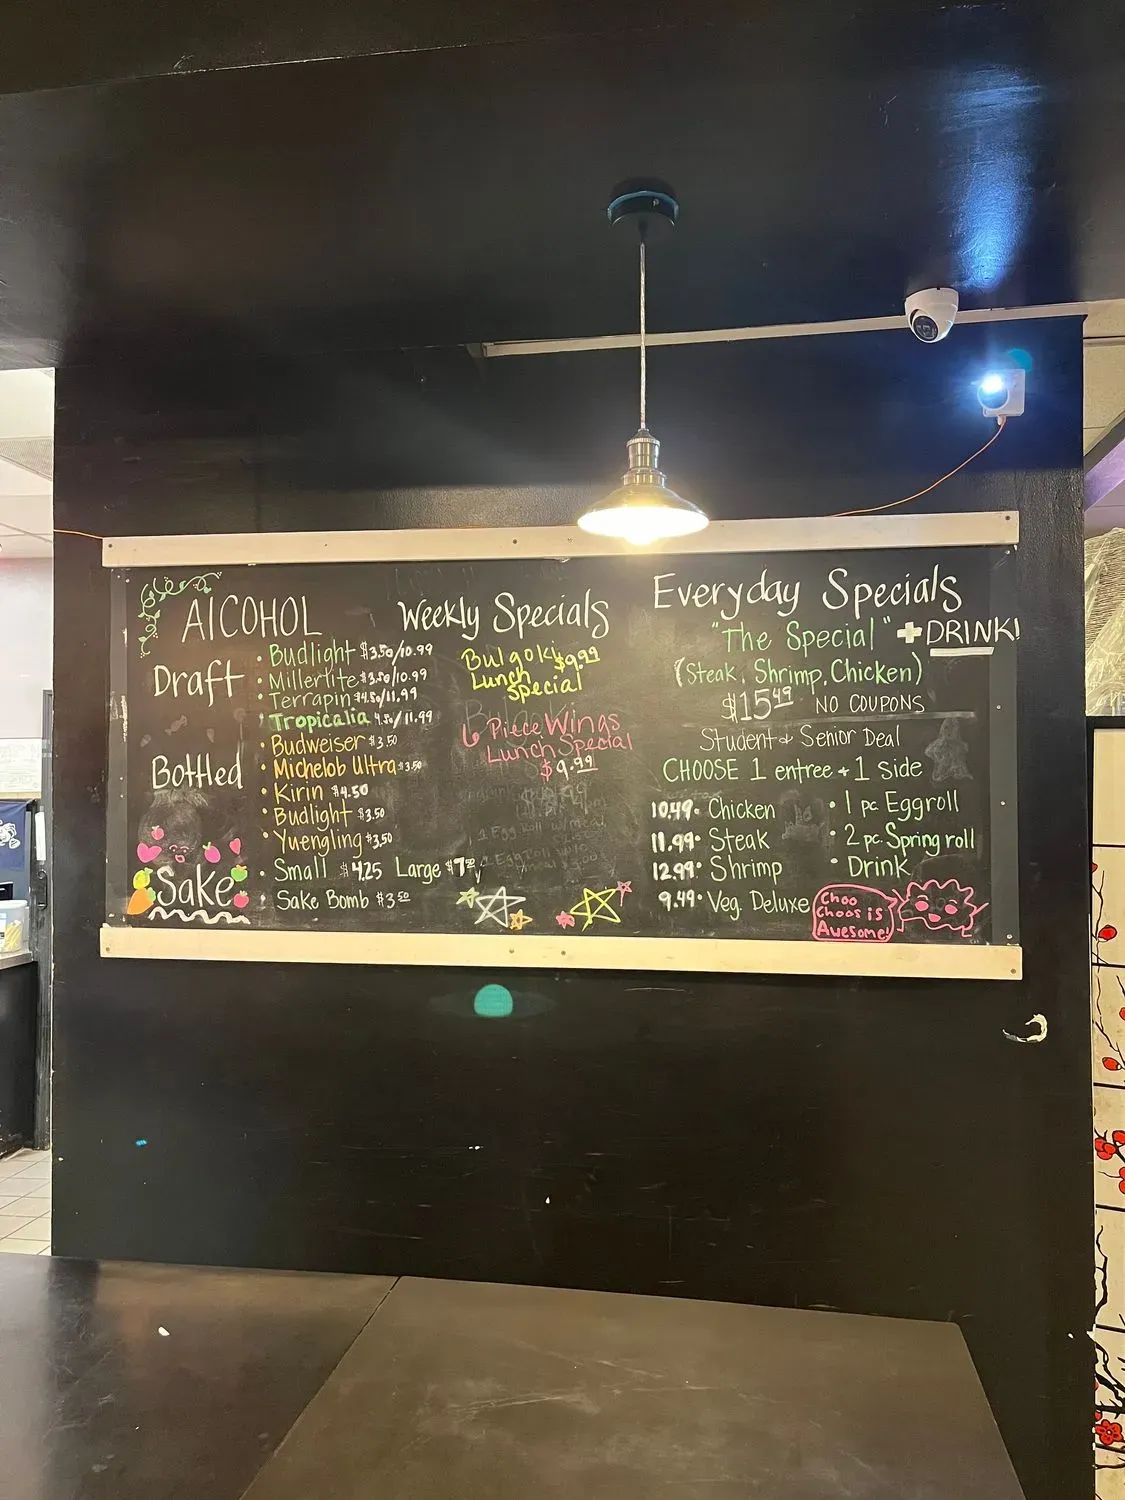 AlCOHOL
Draft
• Budlight $3.50/10.99
• Millerlite $3.50/10.99
• Terrapin $4.50/11.99
• Tropicalia 4.50/11.99
Bottled
• Budweiser $3.50
• Michelob Ultra $3.50
• Kirin $4.50
• Budlight $3.50
• Yuengling $3.50
Sake
• Small $4.25 Large $7.50
• Sake Bomb $3.50
Weekly Specials
Bulgoki $9.99
Lunch
Special
6 Piece Wings
Lunch Special
$9.99
1 Egg Roll w/ meal
Everyday Specials
"The Special" + DRINK!
(Steak, Shrimp, Chicken)
$15.49 NO COUPONS
Student & Senior Deal
CHOOSE 1 entree + 1 side
10.49 • Chicken
11.99 • Steak
12.99 • Shrimp
9.49 • Veg. Deluxe
• 1 pc. Eggroll
• 2 pc. Spring roll
• Drink
Choo
Choos is
Awesome!